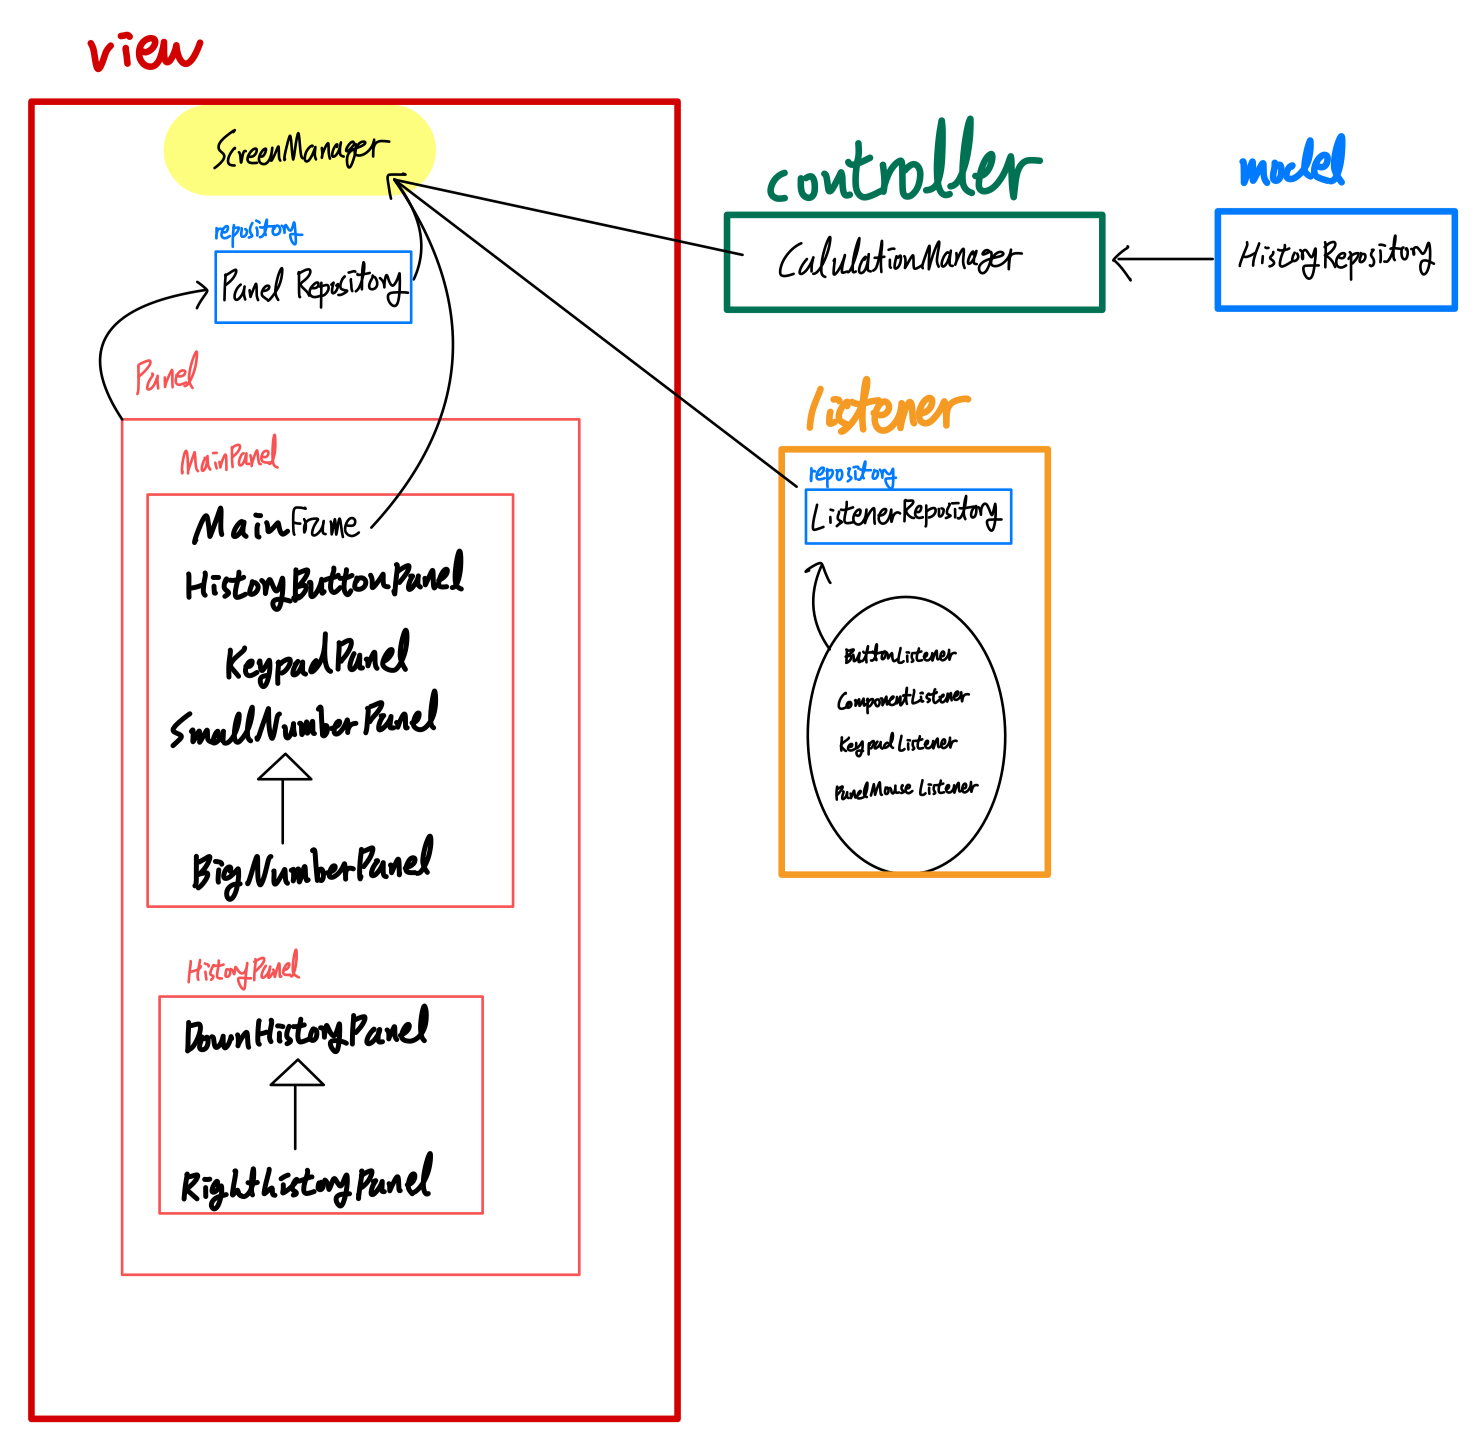 view
ScreenManager
repository
Panel Repository
Panel
MainPanel
MainFrame
HistoryButtonPanel
KeypadPanel
SmallNumberPanel
BigNumberPanel
HistoryPanel
DownHistoryPanel
RighthistoryPanel
controller
CalulationManager
model
HistoryRepository
listener
repository
ListenerRepository
ButtonListener
ComponentListener
Keypad Listener
PanelMouse Listener